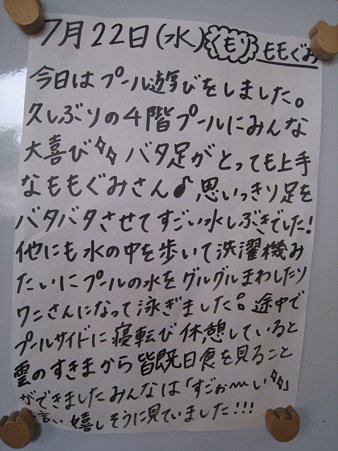 7月22日(水)くもり ももぐみ
今日はプール遊びをしました。
久しぶりの4階プールにみんな
大喜び〃 バタ足がとっても上手
なももぐみさん♪ 思いっきり足を
バタバタさせてすごい水しぶきでした!
他にも水の中を歩いて洗濯機み
たいにプールの水をグルグルまわしたり
ワニさんになって泳ぎました。途中で
プールサイドに寝転び休憩していると
雲のすきまから皆既日食を見ること
ができましたみんなは「すごぉ〜い〃」
と言い嬉しそうに見ていました!!!